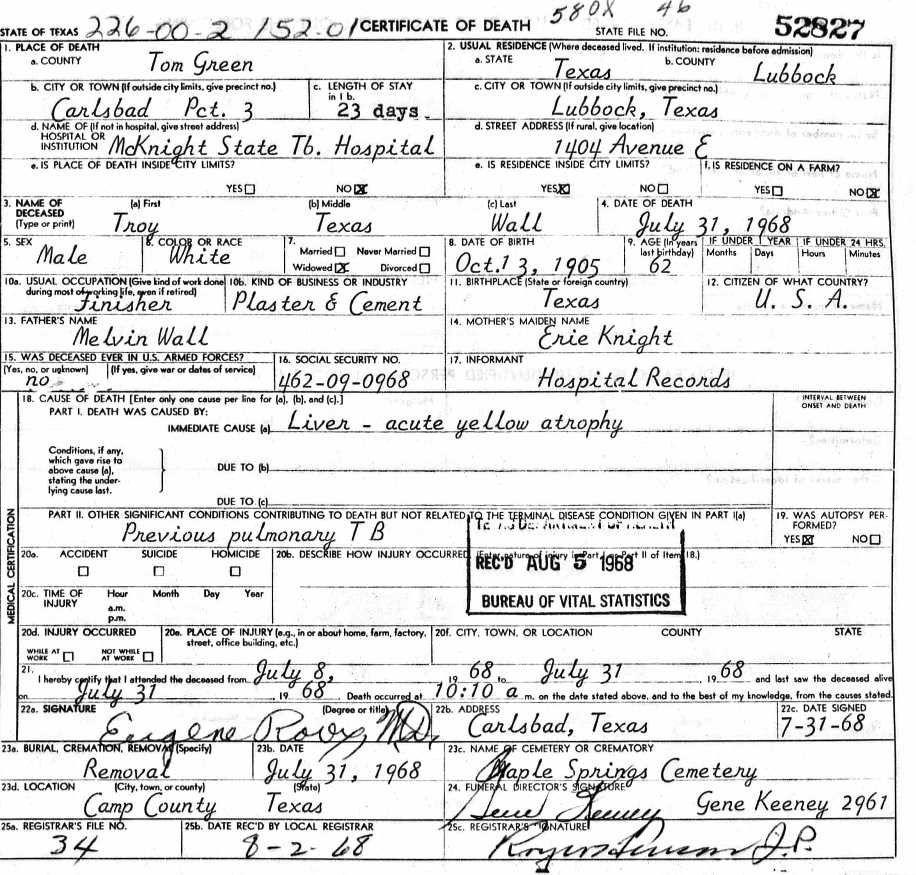 STATE OF TEXAS 226-00-2 152.01 CERTIFICATE OF DEATH 580X 46 STATE FILE NO. 52827
1. PLACE OF DEATH
a. COUNTY Tom Green
2. USUAL RESIDENCE (Where deceased lived. If institution: residence before admission)
a. STATE Texas b. COUNTY Lubbock
b. CITY OR TOWN (If outside city limits, give precinct no.) Carlsbad Pct. 3
c. LENGTH OF STAY in 1 b. 23 days.
c. CITY OR TOWN (If outside city limits, give precinct no.) Lubbock, Texas
d. NAME OF (If not in hospital, give street address) HOSPITAL OR INSTITUTION McKnight State Tb. Hospital
d. STREET ADDRESS (If rural, give location) 1404 Avenue E
e. IS PLACE OF DEATH INSIDE CITY LIMITS? YES☐ NO☒
e. IS RESIDENCE INSIDE CITY LIMITS? YES☒ NO☐
f. IS RESIDENCE ON A FARM? YES☐ NO☒
3. NAME OF DECEASED (Type or print) (a) First Troy (b) Middle Texas (c) Last Wall
4. DATE OF DEATH July 31, 1968
5. SEX Male
6. COLOR OR RACE White
7. Married☐ Never Married☐ Widowed☒ Divorced☐
8. DATE OF BIRTH Oct. 13, 1905
9. AGE (In years last birthday) 62
IF UNDER 1 YEAR Months Days
IF UNDER 24 HRS. Hours Minutes
10a. USUAL OCCUPATION (Give kind of work done during most of working life, even if retired) Finisher
10b. KIND OF BUSINESS OR INDUSTRY Plaster & Cement
11. BIRTHPLACE (State or foreign country) Texas
12. CITIZEN OF WHAT COUNTRY? U. S. A.
13. FATHER'S NAME Melvin Wall
14. MOTHER'S MAIDEN NAME Erie Knight
15. WAS DECEASED EVER IN U.S. ARMED FORCES? (Yes, no, or unknown) (If yes, give war or dates of service) no
16. SOCIAL SECURITY NO. 462-09-0968
17. INFORMANT Hospital Records
MEDICAL CERTIFICATION
18. CAUSE OF DEATH [Enter only one cause per line for (a), (b), and (c).]
INTERVAL BETWEEN ONSET AND DEATH
PART I. DEATH WAS CAUSED BY:
IMMEDIATE CAUSE (a) Liver - acute yellow atrophy
Conditions, if any, which gave rise to above cause (a), stating the underlying cause last.
DUE TO (b)
DUE TO (c)
PART II. OTHER SIGNIFICANT CONDITIONS CONTRIBUTING TO DEATH BUT NOT RELATED TO THE TERMINAL DISEASE CONDITION GIVEN IN PART I(a)
Previous pulmonary TB
19. WAS AUTOPSY PERFORMED? YES☒ NO☐
20a. ACCIDENT ☐ SUICIDE ☐ HOMICIDE ☐
20b. DESCRIBE HOW INJURY OCCURRED. (Enter nature of injury in Part I or Part II of Item 18.)
REC'D AUG 5 1968
BUREAU OF VITAL STATISTICS
20c. TIME OF INJURY Hour a.m. p.m. Month Day Year
20d. INJURY OCCURRED WHILE AT WORK ☐ NOT WHILE AT WORK ☐
20e. PLACE OF INJURY (e.g., in or about home, farm, factory, street, office building, etc.)
20f. CITY, TOWN, OR LOCATION COUNTY STATE
21. I hereby certify that I attended the deceased from July 8, 19 68 to July 31 19 68 and last saw the deceased alive
on July 31 19 68. Death occurred at 10:10 a m. on the date stated above, and to the best of my knowledge, from the causes stated.
22a. SIGNATURE (Degree or title) Eugene M.D.
22b. ADDRESS Carlsbad, Texas
22c. DATE SIGNED 7-31-68
23a. BURIAL, CREMATION, REMOVAL (Specify) Removal
23b. DATE July 31, 1968
23c. NAME OF CEMETERY OR CREMATORY Maple Springs Cemetery
23d. LOCATION (City, town, or county) (State) Camp County Texas
24. FUNERAL DIRECTOR'S SIGNATURE Gene Keeney Gene Keeney 2961
25a. REGISTRAR'S FILE NO. 34
25b. DATE REC'D BY LOCAL REGISTRAR 8-2-68
25c. REGISTRAR'S SIGNATURE J.P.